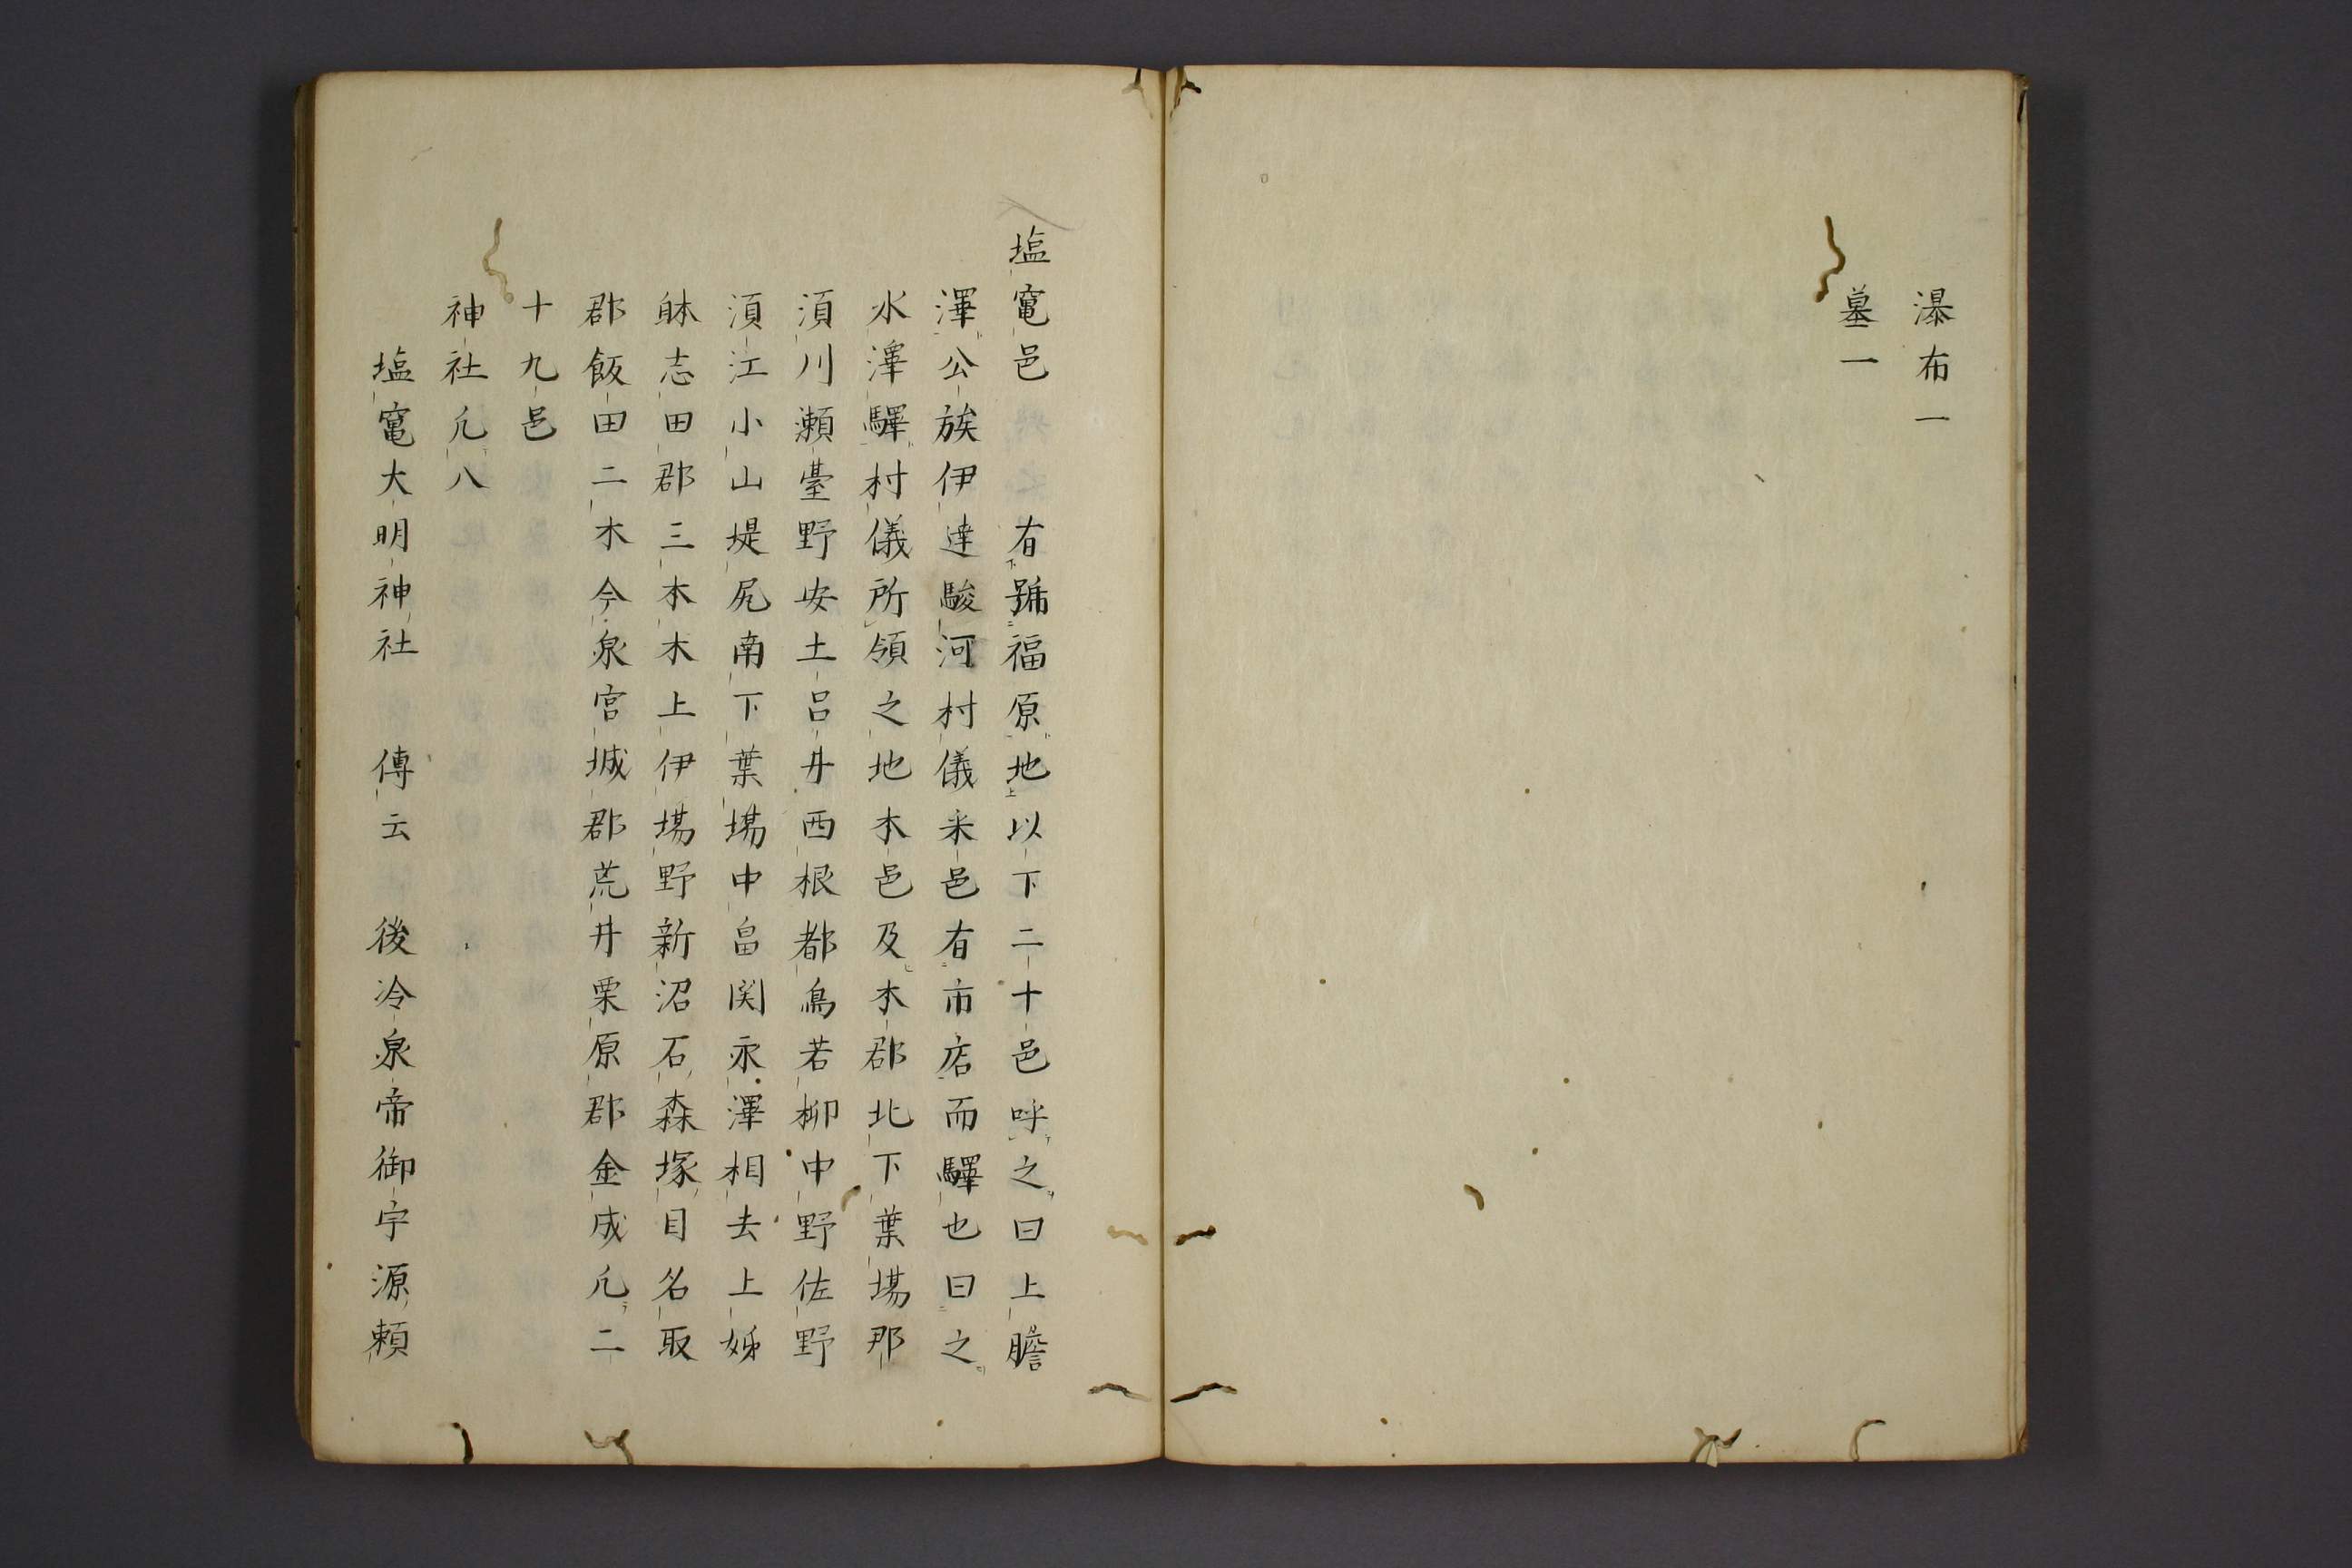 瀑布一
墓一
塩竃邑　有號福原地以下二十邑呼之曰上膽
澤公族伊達駿河村儀采邑有市店而驛也曰之
水澤驛村儀所領之地本邑及本郡北下葉塲那
須川瀬臺野安土呂井西根都鳥若柳中野佐野
須江小山堤尻南下葉塲中畠関永澤相去上姊
躰志田郡三本木上伊塲野新沼石森塚目名取
郡飯田二木今泉宮城郡荒井栗原郡金成凢二
十九邑
神社凢八
塩竃大明神社　傳云　後冷泉帝御宇源頼